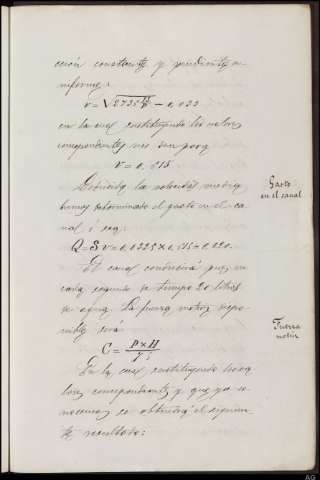 cción constante y pendiente u-
niforme:
v = √2735 — 0,033
en la cual sustituyendo los valores
correspondientes nos dan para
v = 0,615
Obtenida la velocidad media
hemos determinado el gasto en el ca-
nal i sea
Gasto
en el canal
Q = S v = 0,0325 × 0,615 = 0,020.
El canal conducirá pues en
cada segundo de tiempo 20 litros
de agua. La fuerza motriz dispo-
nible será
Fuerza
motriz
C = P × H
En la cual sustituyendo los va-
lores correspondientes y que ya co-
nocemos se obtendrá el siguien-
te resultado:
AG